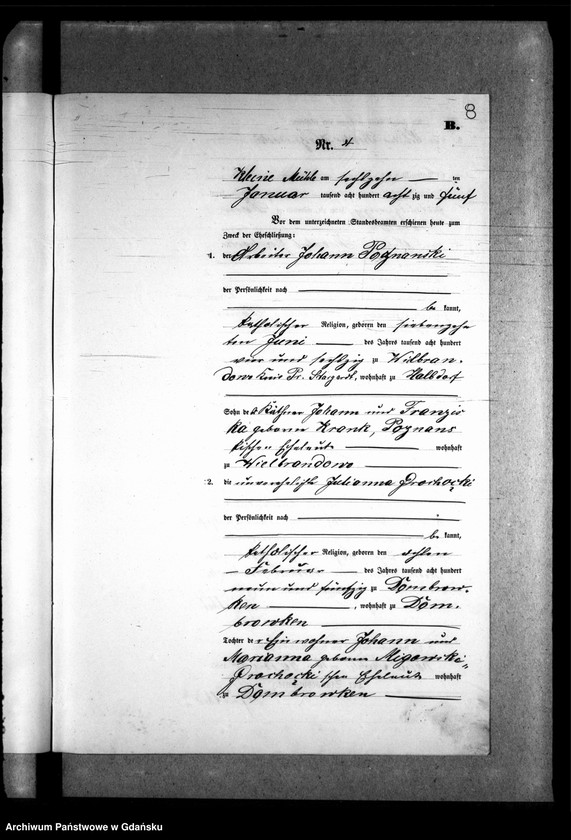 8
B.
Nr. 4
Kleine Mühle am sechzehn ten
Januar tausend acht hundert acht zig und fünf
Vor dem unterzeichneten Standesbeamten erschienen heute zum
Zweck der Eheschließung:
1. der Arbeiter Johann Poznanski
der Persönlichkeit nach
be kannt,
katholischer Religion, geboren den siebenzehn
ten Juni des Jahres tausend acht hundert
vier und sechzig zu Wilbran,
dowo Kreis Pr. Stargardt, wohnhaft zu
Sohn des Käthner Johann und Franzis
ka geborne Krank, Poznans
kischen Eheleute wohnhaft
zu Wielbrandowo
2. die unverehelichte Julianna Prochocki
der Persönlichkeit nach
be kannt,
katholischer Religion, geboren den achten
Februar des Jahres tausend acht hundert
neun und fünfzig zu Dombrow-
ken, wohnhaft zu Dom-
browken
Tochter der Einwohner Johann und
Marianna geborne Migowski-
Prochocki schen Eheleute wohnhaft
zu Dombrowken
Archiwum Państwowe w Gdańsku